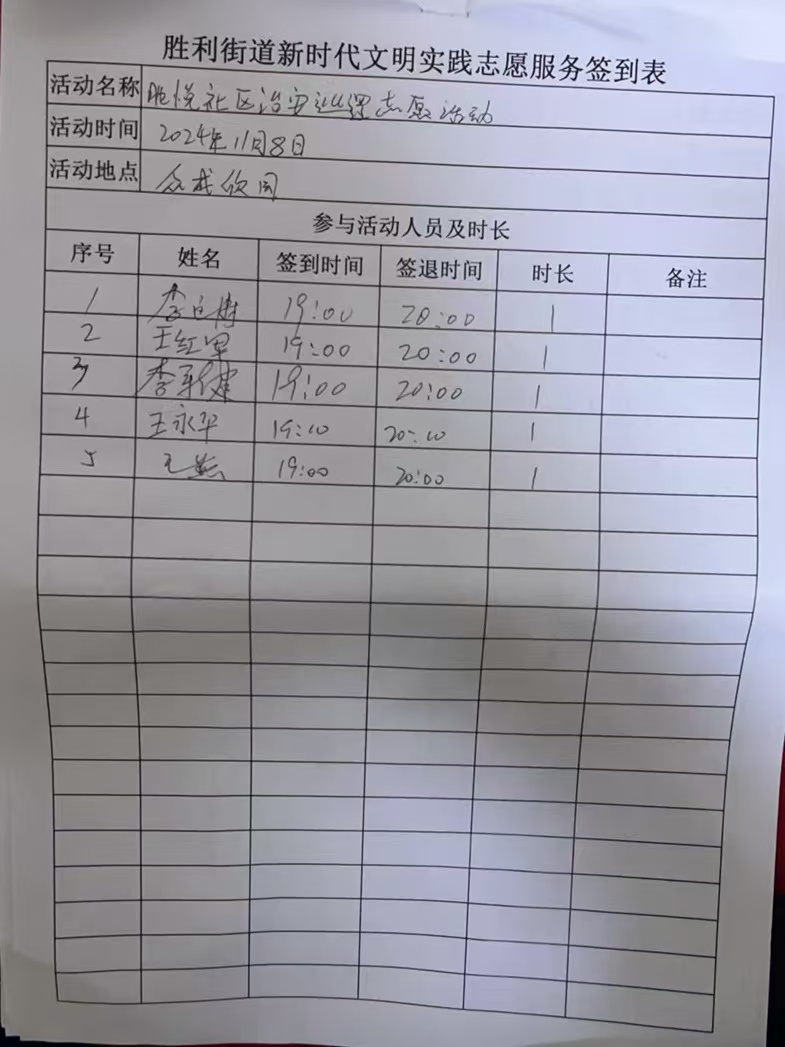 胜利街道新时代文明实践志愿服务签到表
活动名称 胜悦社区治安巡逻志愿活动
活动时间 2024年11月8日
活动地点 众成欣园
参与活动人员及时长
序号 姓名 签到时间 签退时间 时长 备注
1 李 19:00 20:00 1
2 王红军 19:00 20:00 1
3 李 健 19:00 20:00 1
4 王永华 19:10 20:10 1
5 王 19:00 20:00 1